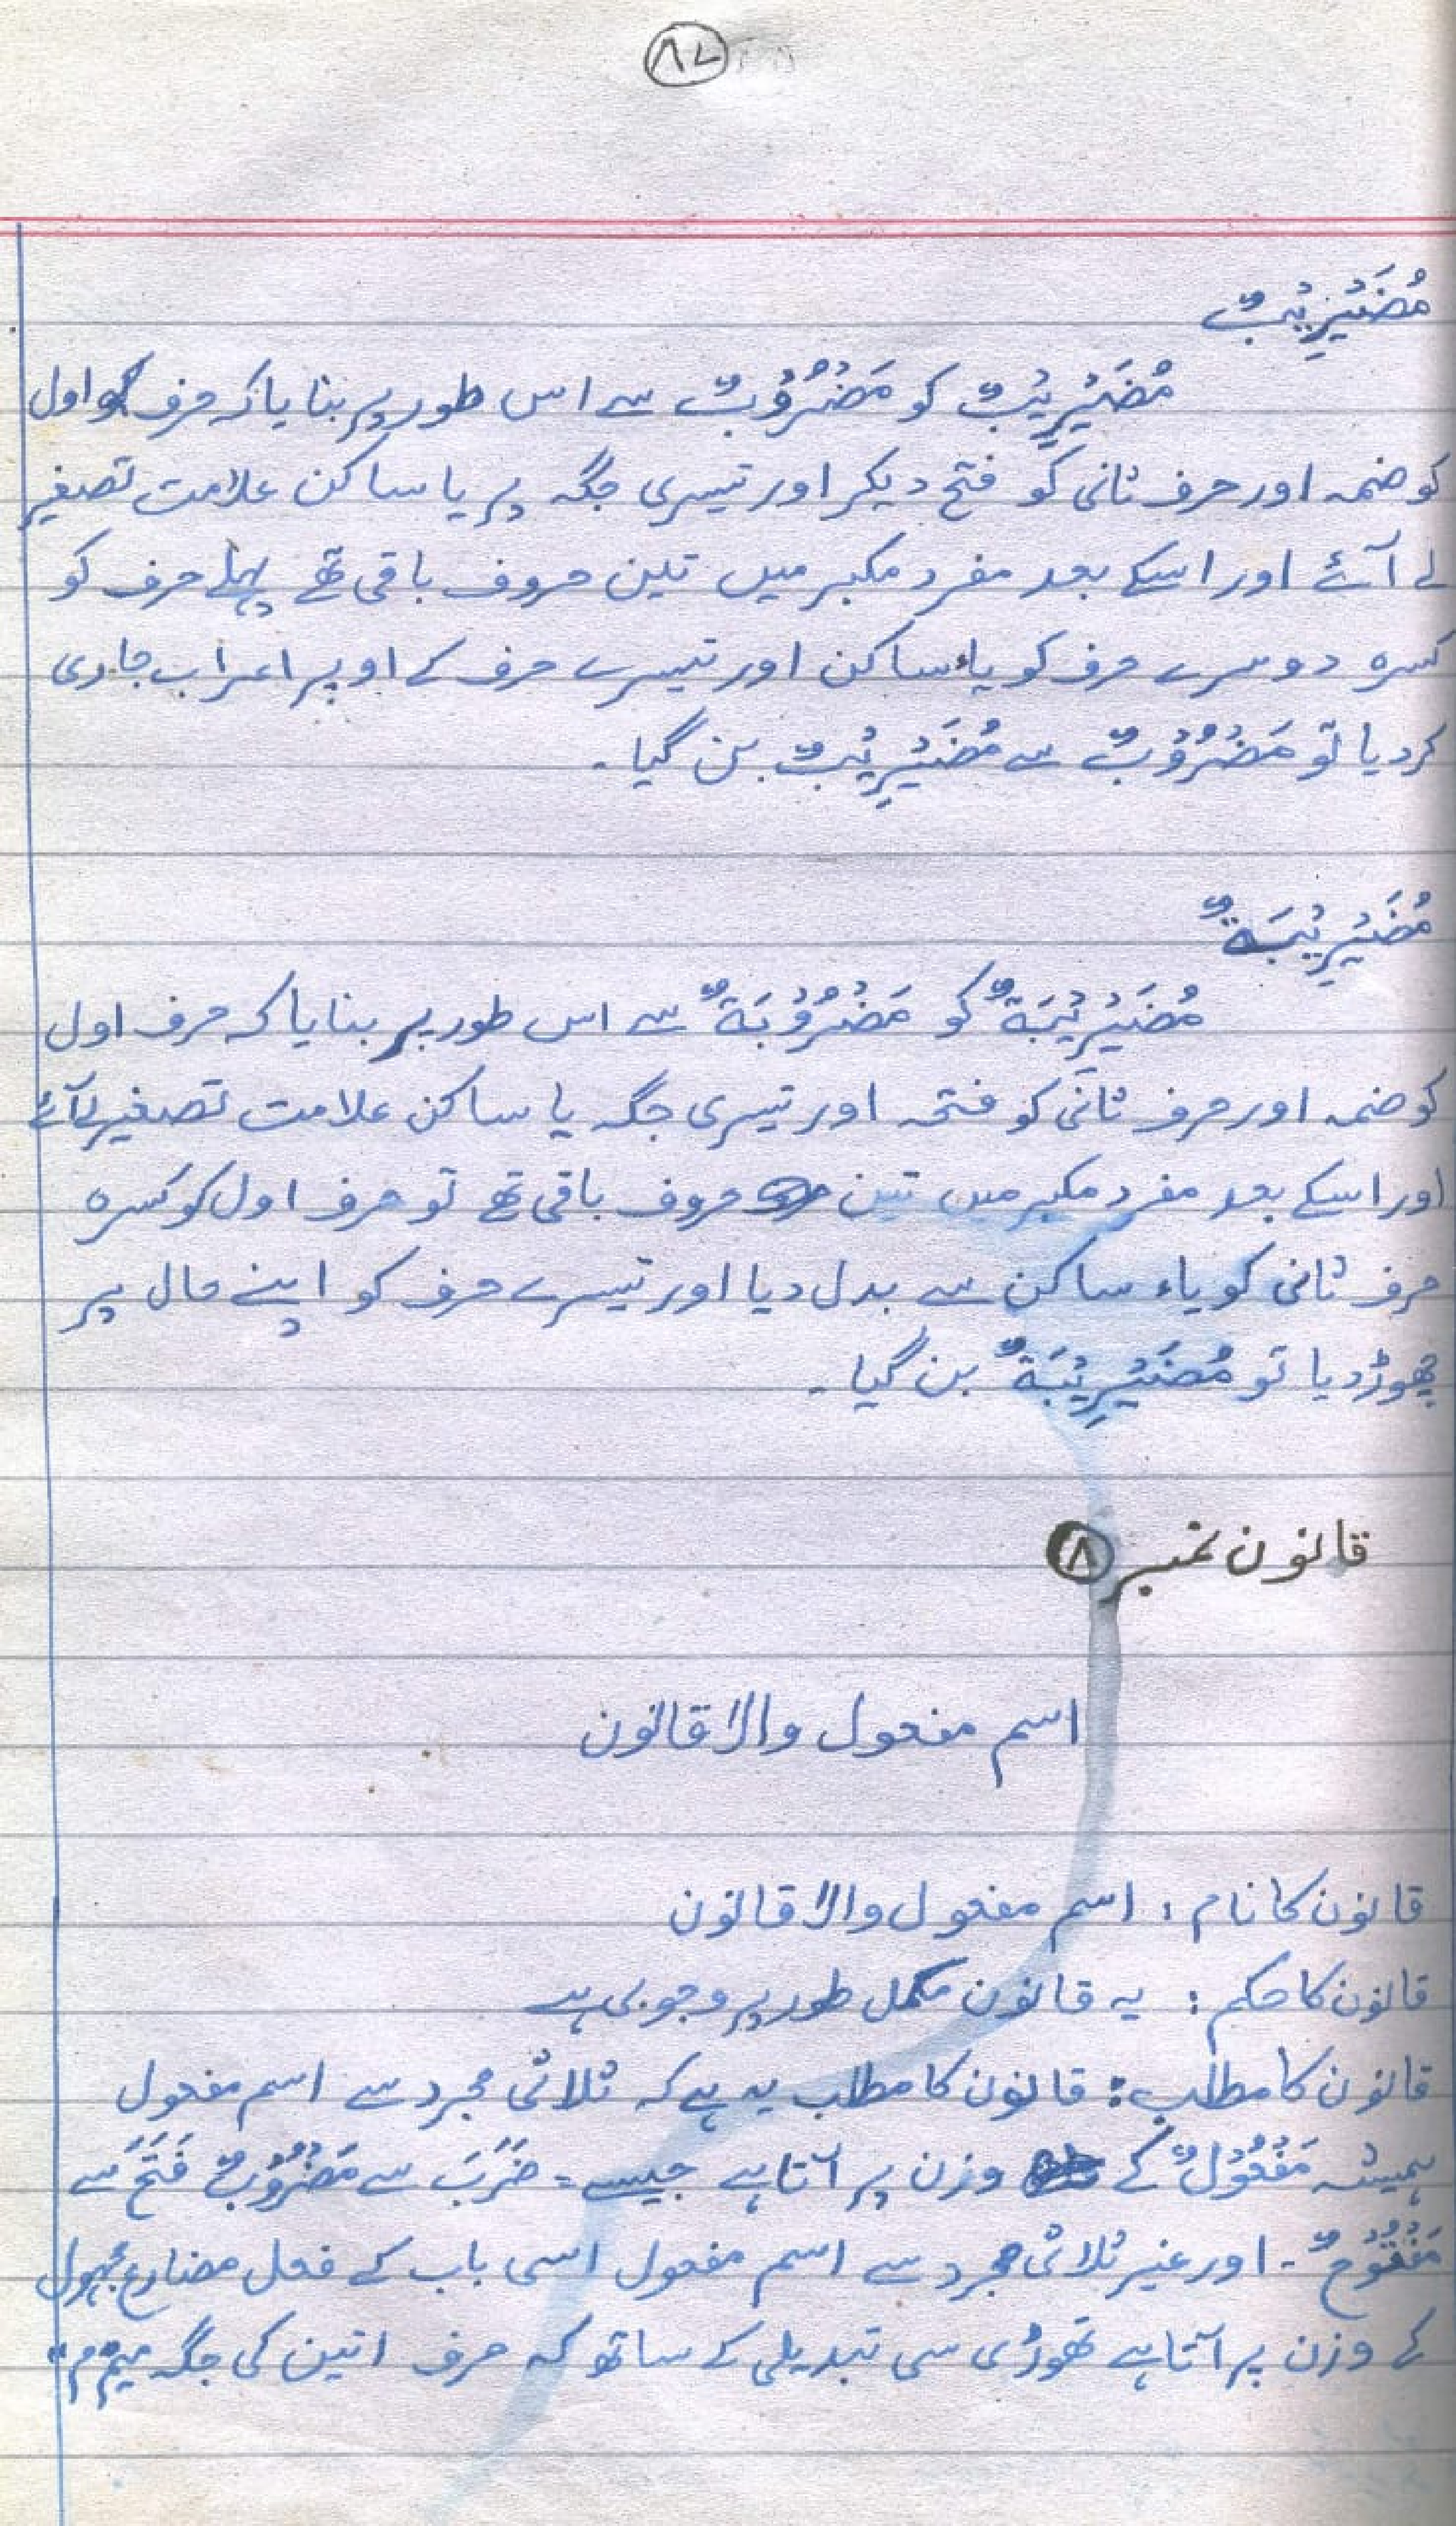 ۸۷
مُضَیْرِیْبٌ
مُضَیْرِیْبٌ کو مَضْرُوْبٌ سے اس طور پر بنایا کہ حرف اول
کو ضمہ اور حرف ثانی کو فتح دیکر اور تیسری جگہ پر یا ساکن علامت تصغیر
لے آئے اور اسکے بعد مفرد مکبر میں تین حروف باقی تھے پہلے حرف کو
کسرہ دوسرے حرف کو یاء ساکن اور تیسرے حرف کے اوپر اعراب جاری
کردیا تو مَضْرُوْبٌ سے مُضَیْرِیْبٌ بن گیا۔
مُضَیْرِیْبَةٌ
مُضَیْرِیْبَةٌ کو مَضْرُوْبَةٌ سے اس طور پر بنایا کہ حرف اول
کو ضمہ اور حرف ثانی کو فتحہ اور تیسری جگہ یا ساکن علامت تصغیر لے آئے
اور اسکے بعد مفرد مکبر میں تین حروف باقی تھے تو حرف اول کو کسرہ
حرف ثانی کو یاء ساکن سے بدل دیا اور تیسرے حرف کو اپنے حال پر
چھوڑ دیا تو مُضَیْرِیْبَةٌ بن گیا۔
قانون نمبر ۸
اسم مفعول والا قانون
قانون کا نام: اسم مفعول والا قانون
قانون کا حکم: یہ قانون مکمل طور پر وجوبی ہے
قانون کا مطلب: قانون کا مطلب یہ ہے کہ ثلاثی مجرد سے اسم مفعول
ہمیشہ مَفْعُوْلٌ کے وزن پر آتا ہے جیسے = ضَرَبَ سے مَضْرُوْبٌ فَتَحَ سے
مَفْتُوْحٌ ۔ اور غیر ثلاثی مجرد سے اسم مفعول اسی باب کے فعل مضارع مجہول
کے وزن پر آتا ہے تھوڑی سی تبدیلی کے ساتھ کہ حرف اتین کی جگہ میم "م"